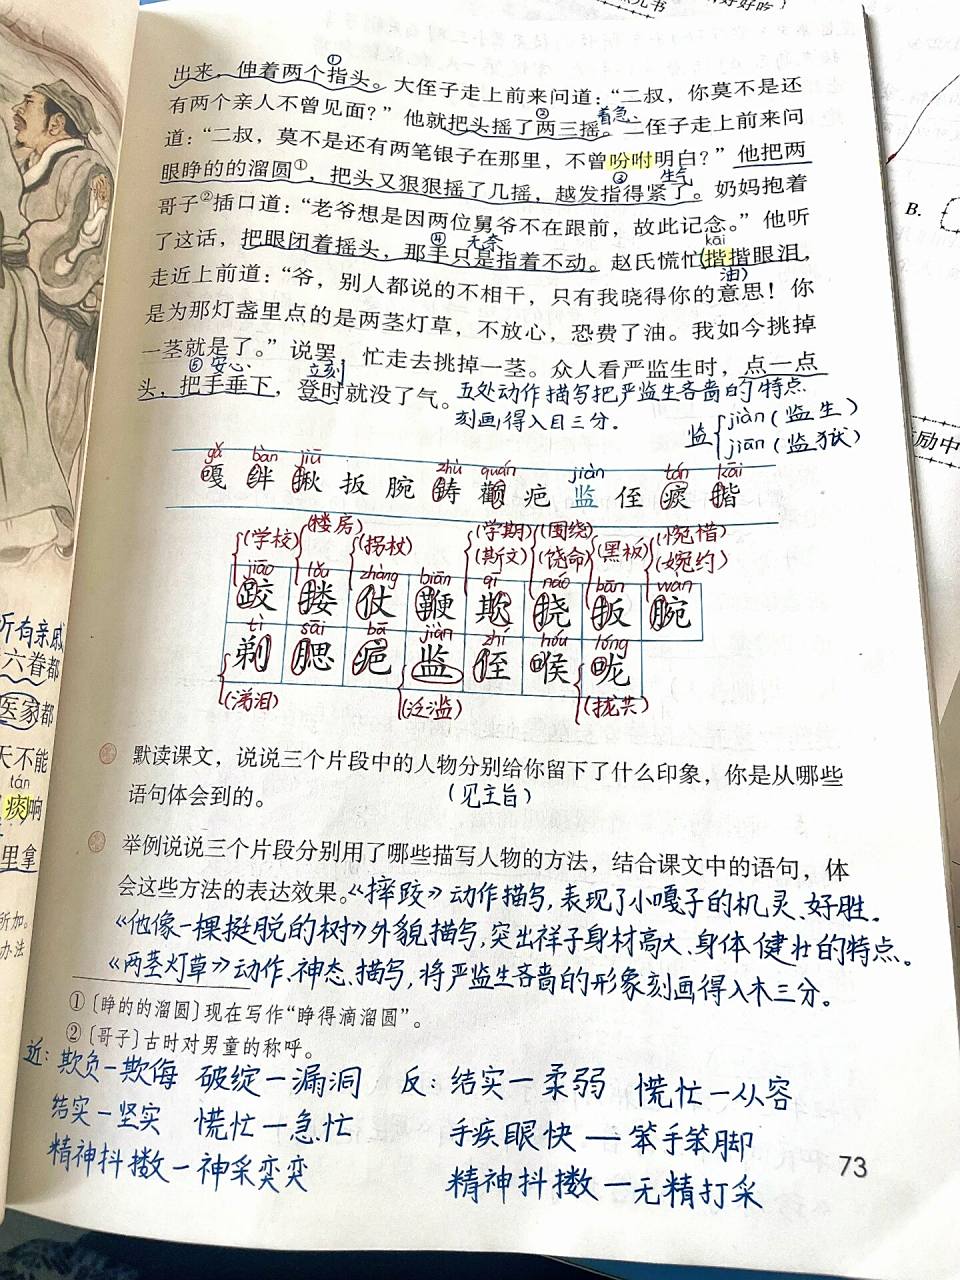 出来，伸着两个指头。大侄子走上前来问道：“二叔，你莫不是还
①
有两个亲人不曾见面？”他就把头摇了两三摇。二侄子走上前来问
② 着急
道：“二叔，莫不是还有两笔银子在那里，不曾吩咐明白？”他把两
眼睁的的溜圆①，把头又狠狠摇了几摇，越发指得紧了。奶妈抱着
③ 生气
哥子②插口道：“老爷想是因两位舅爷不在跟前，故此记念。”他听
了这话，把眼闭着摇头，那手只是指着不动。赵氏慌忙揩揩眼泪，
④ 无奈 kāi
走近上前道：“爷，别人都说的不相干，只有我晓得你的意思！你
(油)
是为那灯盏里点的是两茎灯草，不放心，恐费了油。我如今挑掉
一茎就是了。”说罢，忙走去挑掉一茎。众人看严监生时，点一点
⑤ 安心 立刻
头，把手垂下，登时就没了气。
五处动作描写把严监生吝啬的特点
刻画得入目三分。
监 jiàn（监生）
jiān（监狱）
gǎ bàn jiū zhù quán jiàn tán kāi
嘎 绊 揪 扳 腕 铸 颧 疤 监 侄 痰 揩
(学校) (楼房) (拐杖) (学期) (围绕) (黑板) (惋惜)
(斯文) (饶命) (婉约)
jiāo lǒu zhàng biān qī náo bān wàn
跤 搂 仗 鞭 欺 挠 扳 腕
tì sāi bā jiàn zhí hóu lóng
剃 腮 疤 监 侄 喉 咙
(涕泪) (泛滥) (拢共)
默读课文，说说三个片段中的人物分别给你留下了什么印象，你是从哪些
语句体会到的。
（见主旨）
举例说说三个片段分别用了哪些描写人物的方法，结合课文中的语句，体
会这些方法的表达效果。
《摔跤》动作描写，表现了小嘎子的机灵、好胜。
《他像一棵挺脱的树》外貌描写，突出祥子身材高大、身体健壮的特点。
《两茎灯草》动作、神态、描写，将严监生吝啬的形象刻画得入木三分。
①〔睁的的溜圆〕现在写作“睁得滴溜圆”。
②〔哥子〕古时对男童的称呼。
近：欺负—欺侮 破绽—漏洞 反：结实—柔弱 慌忙—从容
结实—坚实 慌忙—急忙 手疾眼快—笨手笨脚
精神抖擞—神采奕奕 精神抖擞—无精打采
73
所有亲戚
六眷都
医家都
天不能
tán
痰响
里拿
所加。
办法
B.
励中